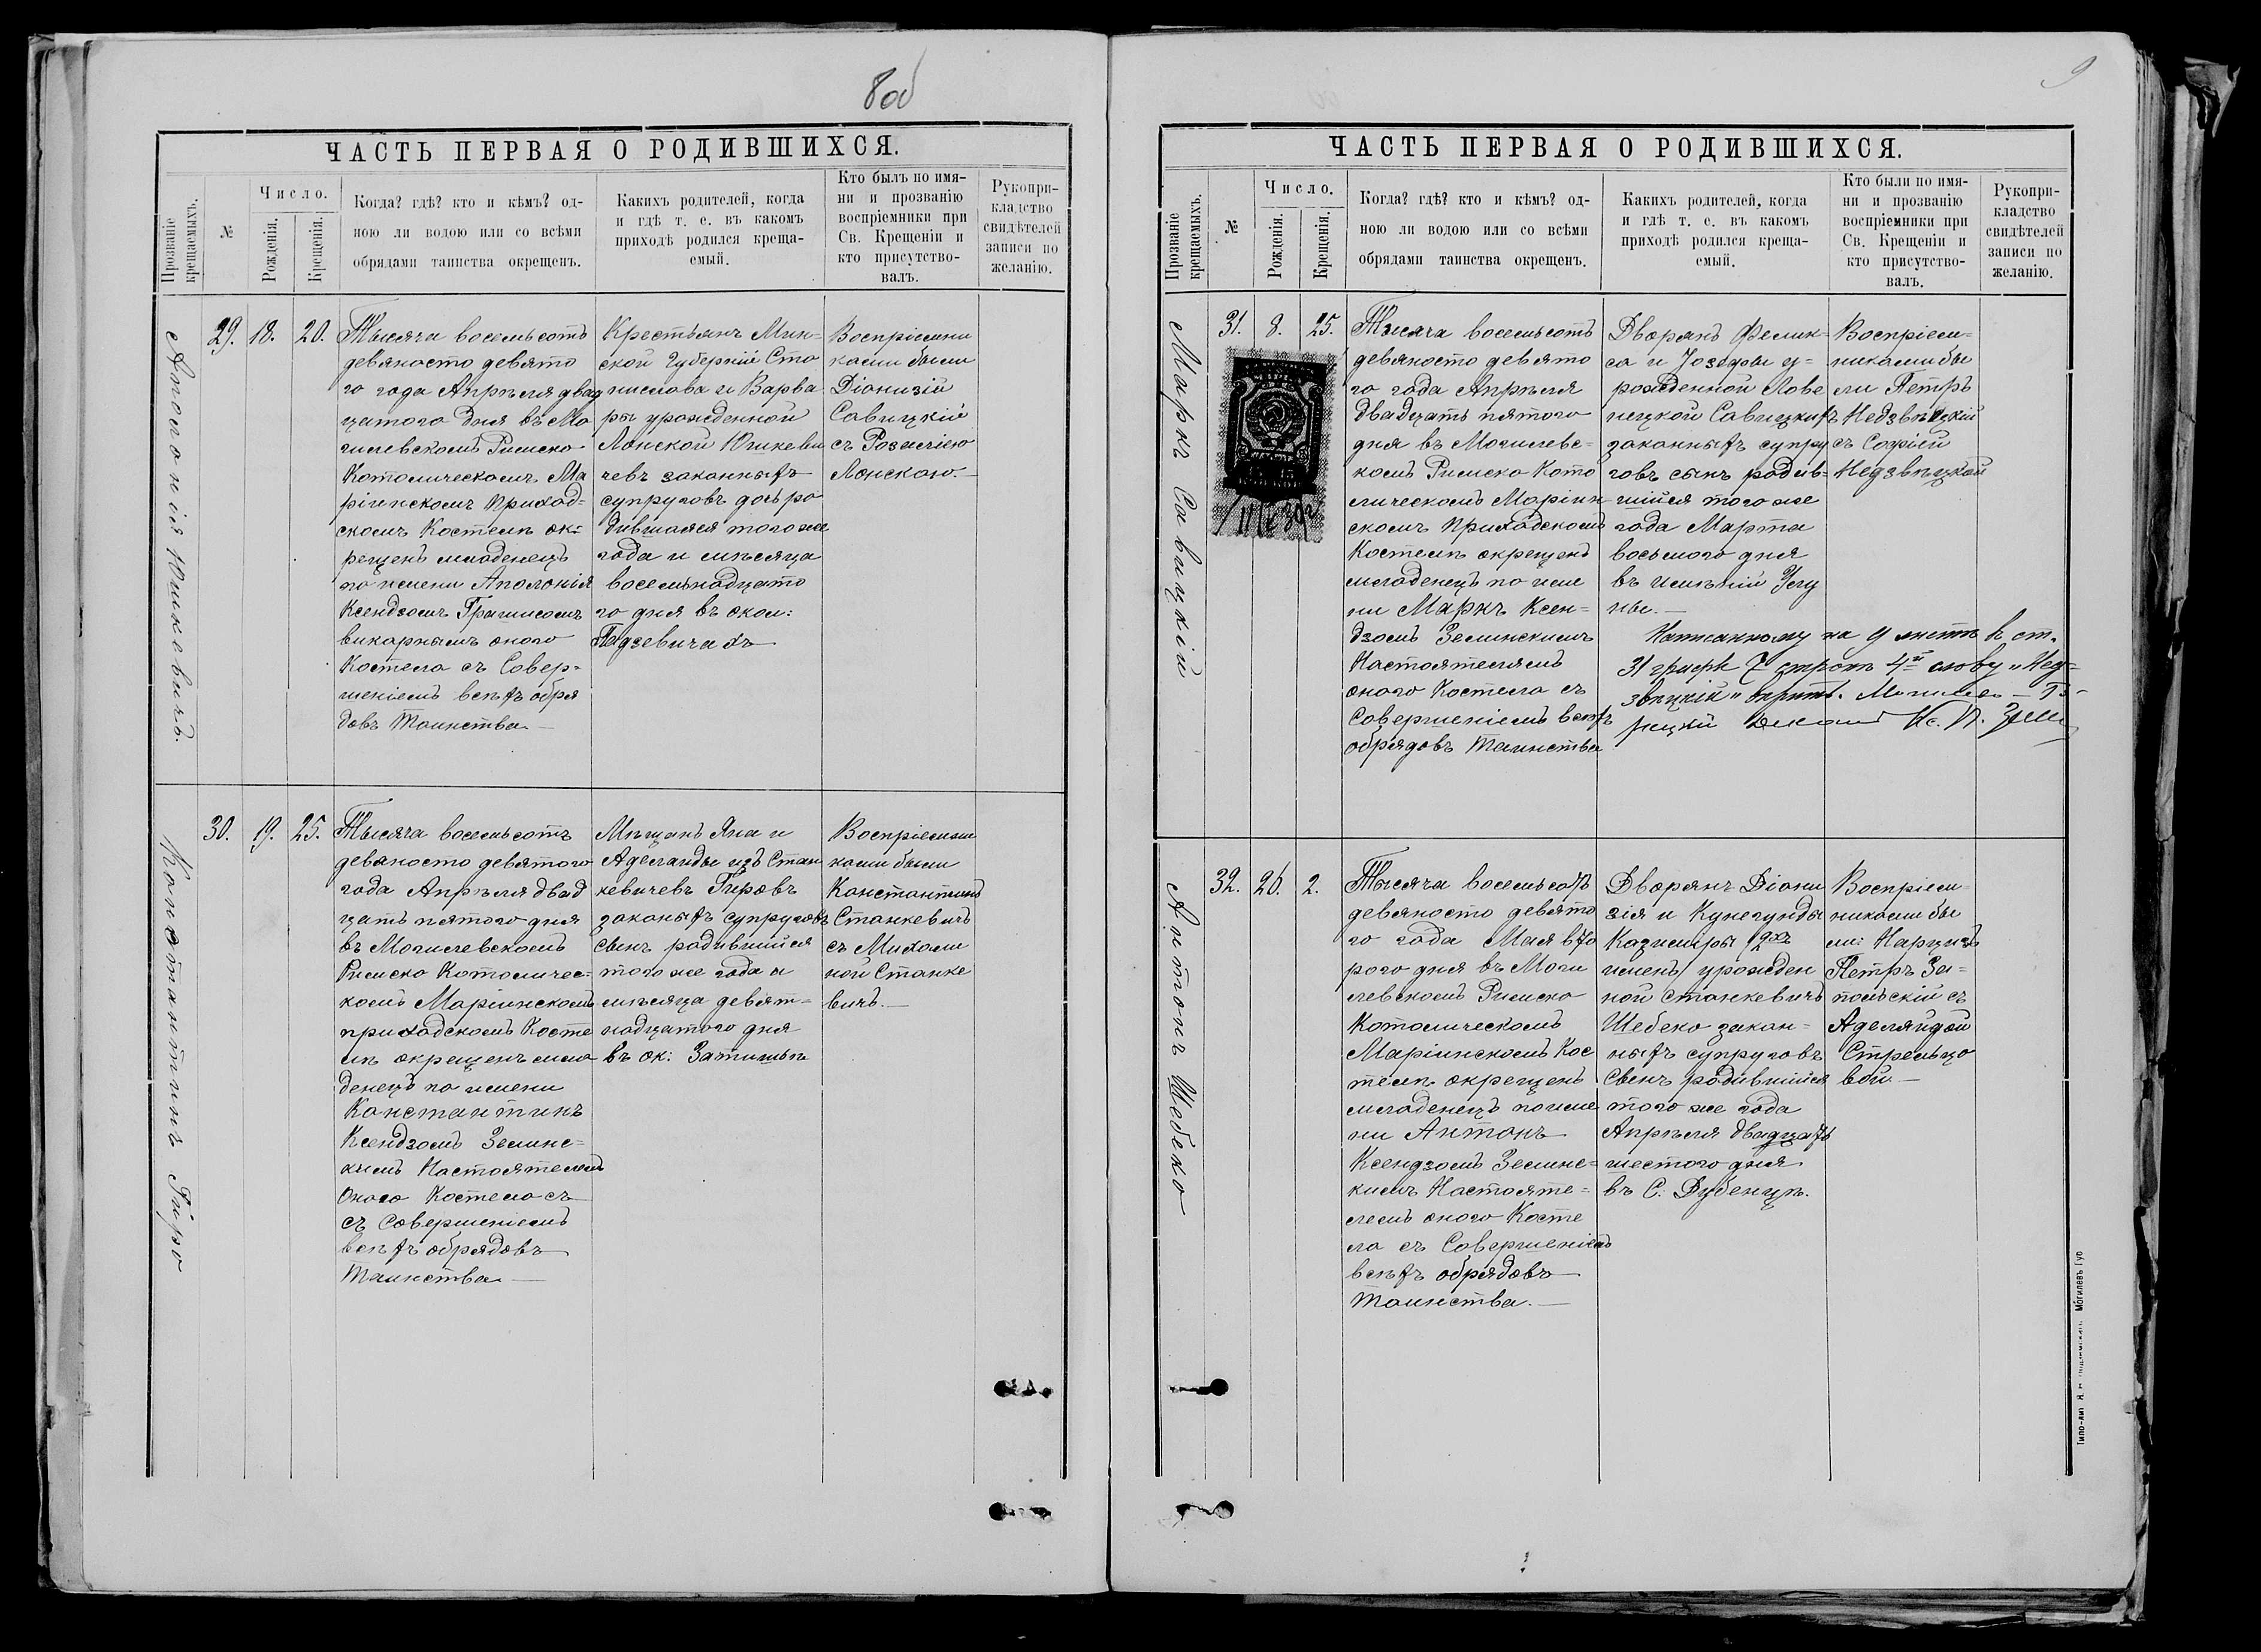 8об
ЧАСТЬ ПЕРВАЯ О РОДИВШИХСЯ.
Прозваніе
крещаемыхъ.
№
Число.
Рожденія.
Крещенія.
Когда? гдѣ? кто и кѣмъ? од-
ною ли водою или со всѣми
обрядами таинства окрещенъ.
Какихъ родителей, когда
и гдѣ т. е. въ какомъ
приходѣ родился креща-
емый.
Кто былъ по имя-
ни и прозванію
воспріемники при
Св. Крещеніи и
кто присутство-
валъ.
Рукопри-
кладство
свидѣтелей
записи по
желанію.
Аполонія Юшкевичъ.
29. 18. 20.
Тысяча восемьсотъ
девяносто девято
го года Апрѣля двад
цатого дня въ Мо
гилевскомъ Римско-
Католическомъ Ма
ріинскомъ Приход=
скомъ Костелѣ ок=
рещенъ младенецъ
по имени Аполонія
Ксендзомъ
викарнымъ оного
Костела съ Совер-
шеніемъ всѣхъ обря
довъ Таинства.—
Крестьянъ Мин=
ской Губерніи Ста
нислава и Варва
ры урожденной
Лонской Юшкеви
чевъ законныхъ
супруговъ дочь ро
дившаяся того же
года и мѣсяца
восемьнадцато
го дня въ окол:
Гадзевичахъ
Воспріемни
ками были
Діонизій
Савицкій
съ Розаліею
Лонскою.—
Константинъ Гиро
30. 19. 25.
Тысяча восемьсотъ
девяносто девятого
года Апрѣля двад
цать пятого дня
въ Могилевскомъ
Римско Католичес=
комъ Маріинскомъ
приходскомъ Косте
лѣ окрещенъ мла
денецъ по имени
Константинъ
Ксендзомъ Зелинс=
кимъ Настоятелемъ
Оного Костела съ
съ Совершеніемъ
всѣхъ обрядовъ
Таинства.—
Мѣщанъ Яна и
Аделаиды изъ Стан
кевичевъ Гировъ
законыхъ супруговъ
сынъ родившийся
того же года и
мѣсяца девят=
надцатого дня
въ ок: Затишьѣ
Воспріемни
ками были
Константинъ
Станкевичъ
съ Михали
ной Станке
вичъ.—
9
ЧАСТЬ ПЕРВАЯ О РОДИВШИХСЯ.
Прозваніе
крещаемыхъ.
№
Число.
Рожденія.
Крещенія.
Когда? гдѣ? кто и кѣмъ? од-
ною ли водою или со всѣми
обрядами таинства окрещенъ.
Какихъ родителей, когда
и гдѣ т. е. въ какомъ
приходѣ родился креща-
емый.
Кто были по имя-
ни и прозванію
воспріемники при
Св. Крещеніи и
кто присутство-
валъ.
Рукопри-
кладство
свидѣтелей
записи по
желанію.
Маркъ Савицкій
31. 8. 25.
Тысяча восемьсотъ
девяносто девято
го года Апрѣля
двадцать пятого
дня въ Могилевс=
комъ Римско Като
лическомъ Маріин
скомъ Приходскомъ
Костелѣ окрещенъ
младенецъ по име
ни Маркъ Ксен=
дзомъ Зелинскимъ
Настоятелемъ
оного Костела съ
Совершеніемъ всѣхъ
обрядовъ Таинства
Дворянъ Феликс
са и Іозефы у=
рожденной Лове
нецкой Савицкихъ
законныхъ супру
говъ сынъ родив=
шийся того же
года Марта
восьмого дня
въ имѣніи
Воспріем=
никами бы
ли Петръ
Недзвѣцкій
съ Софіей
Недзвѣцкой
Написанному на 9 листѣ въ ст.
31 графѣ 7 строкѣ слову „Нед=
звѣцкій" вѣрить.
Антонъ Шебеко
32. 26. 2.
Тысяча восемьсотъ
девяносто девято
го года Мая вто
рого дня въ Моги
левскомъ Римско
Католическомъ
Маріинскомъ Кос
телѣ окрещенъ
младенецъ по име
ни Антонъ
Ксендзомъ Зелинс=
кимъ Настояте=
лемъ оного Косте
ла съ Совершеніемъ
всѣхъ обрядовъ
Таинства.—
Дворянъ Діони
зія и Кунегунды
Казиміры
именъ урожден
ной Станкевичъ
Шебеко закон=
ныхъ супруговъ
сынъ родившийся
того же года
Апрѣля двадцать
шестого дня
въ С. Дубенцѣ.
Воспріем=
никами бы
ли:
Петръ За=
польскій съ
Аделяйдой
Стрельцо
вой—